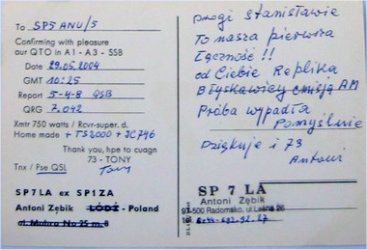 To SP5ANU/5
Confirming with pleasure
our QTO in A1 - A3 - SSB
Date 29.05.2004
GMT 10:25
Report 5-4-8 QSB
QRG 7.042
Xmtr 750 watts / Rcvr-super. d.
Home made + TS2000 + IC746
Thank you, hpe to cuagn
73 - TONY
Tnx / Pse QSL Tony
SP7LA ex SP1ZA
Antoni Zębik ŁÓDŹ - Poland
ul. Mokra No 25 m. 8
Drogi Stanisławie
To nasza pierwsza
Łączność!!
od Ciebie Replika
Błyskawicy emisja AM
Próba wypadła
Pomyślnie
Dziękuję i 73
Antoni
SP 7 LA
Antoni Zębik
97-500 Radomsko, ul.